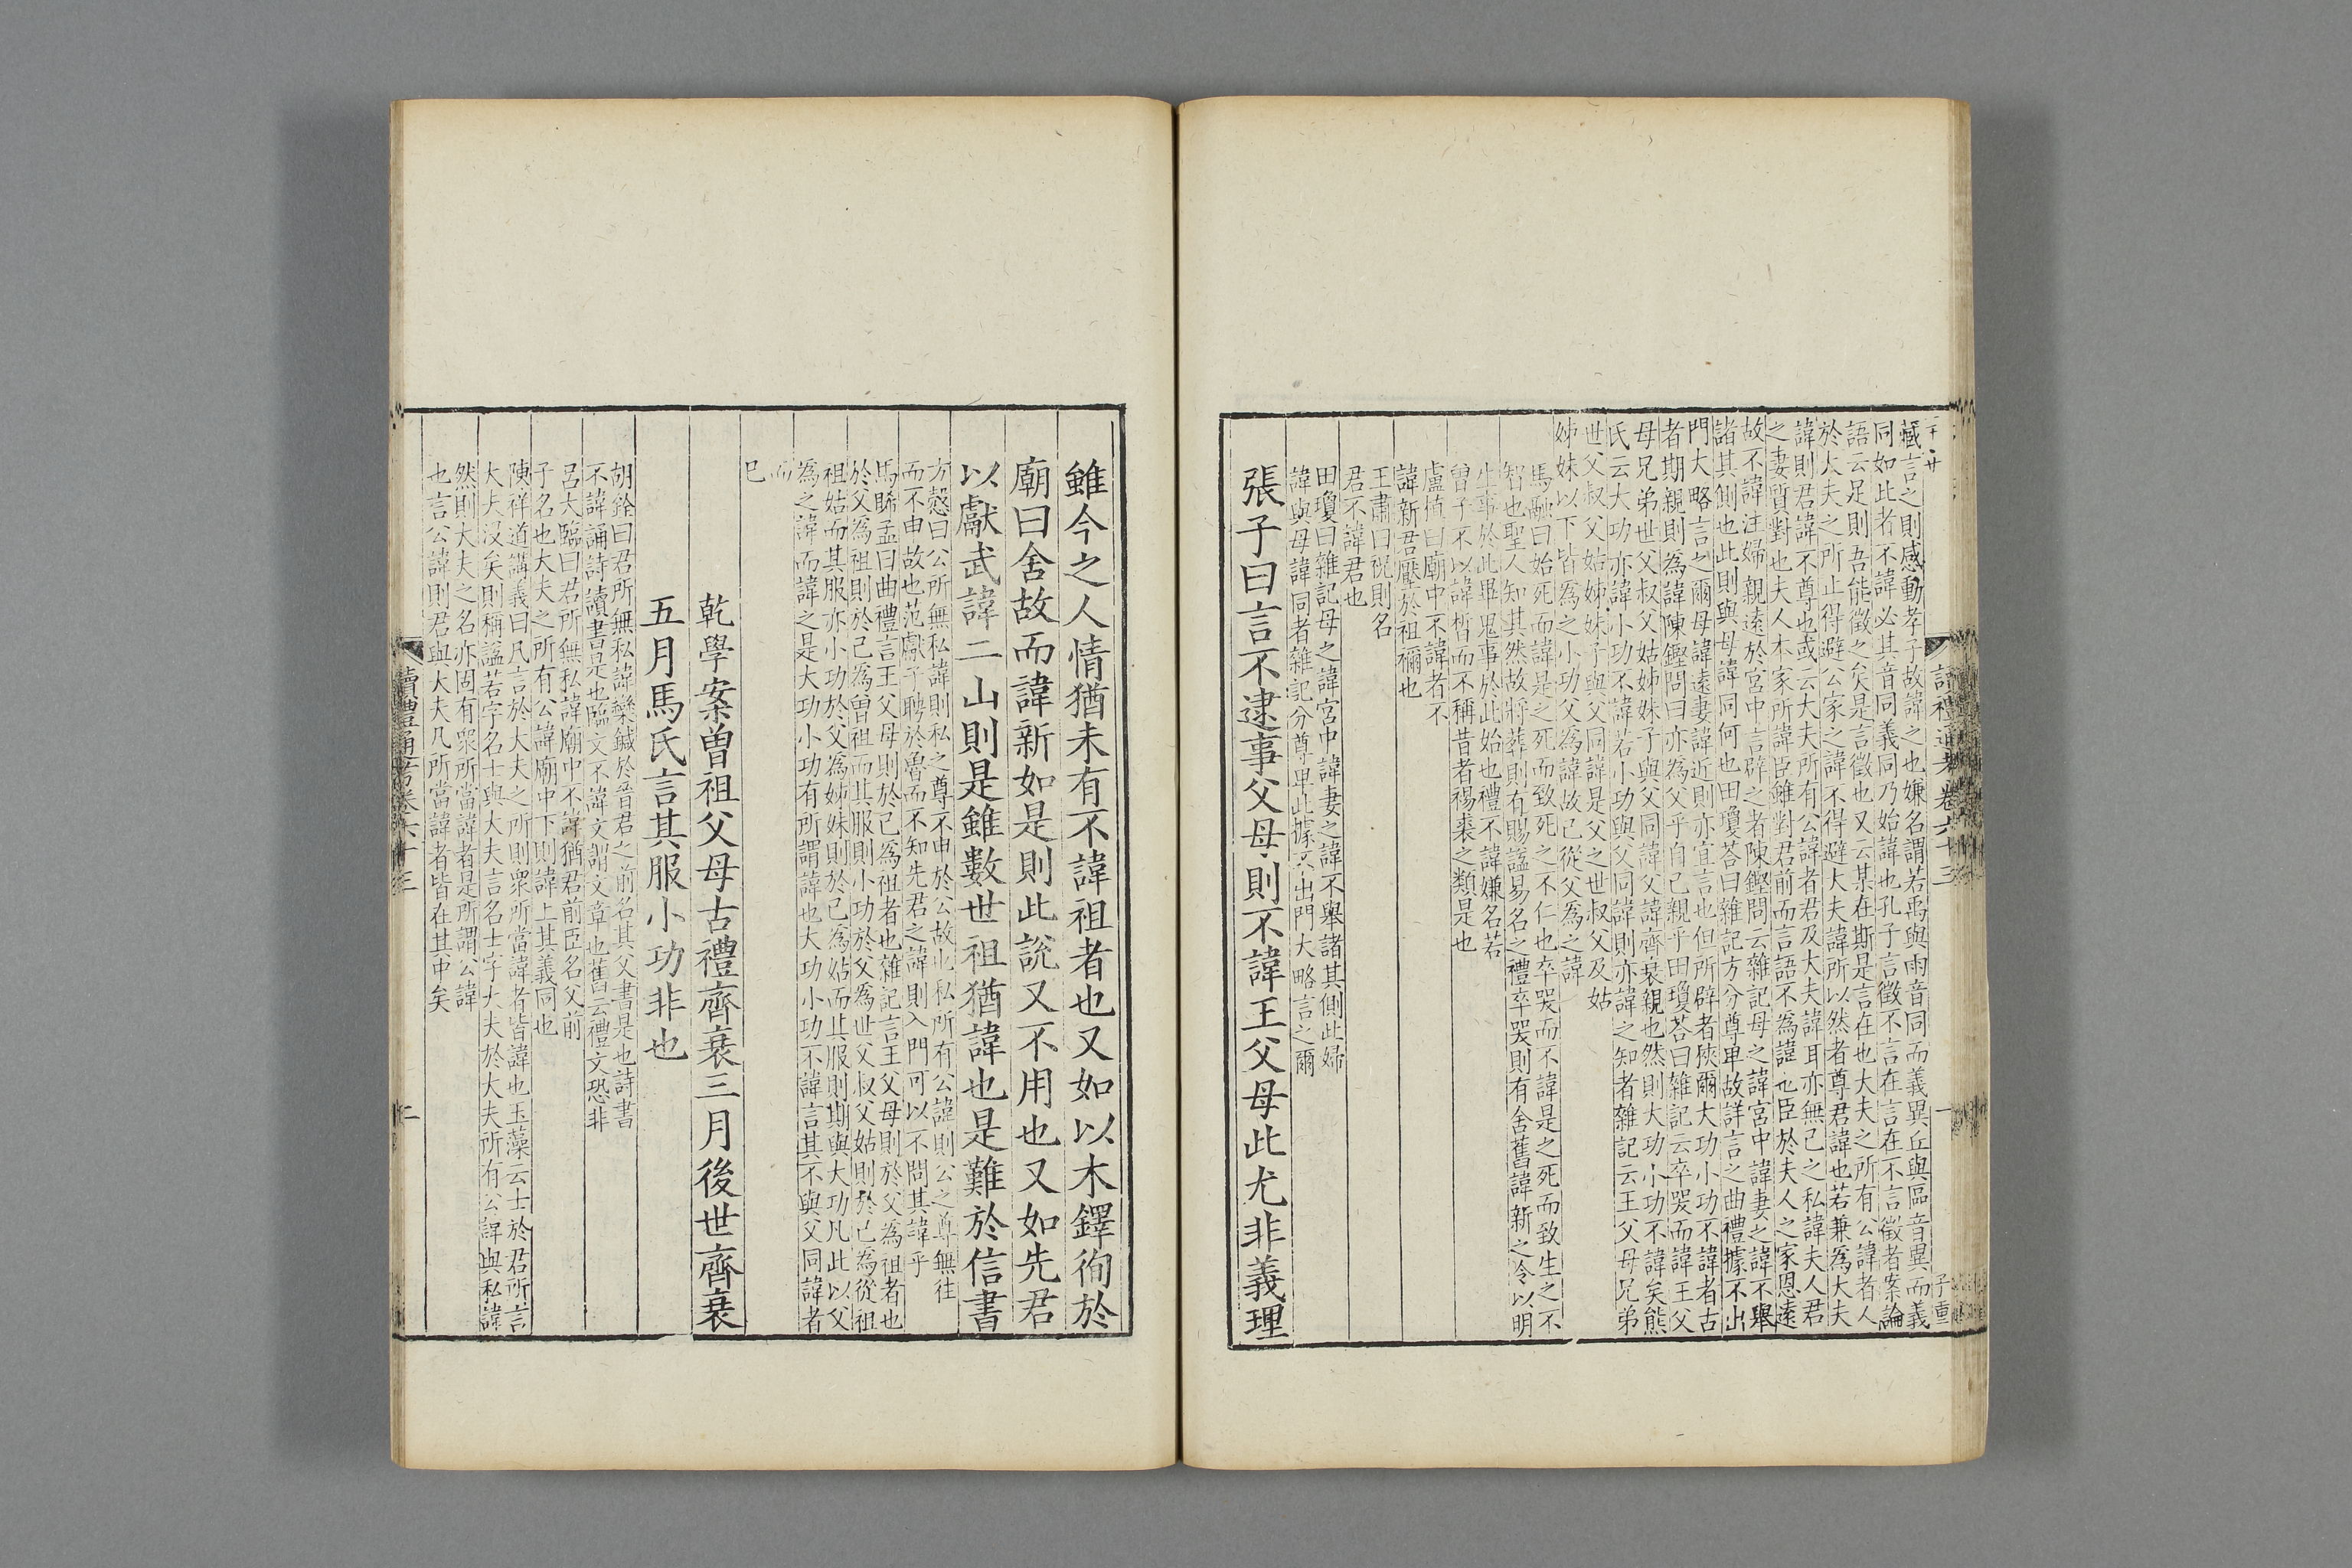 讀禮通考卷六十三
一
子重
藏言之則感動孝子故諱之也嫌名謂若禹與雨音同而義異丘與區音異而義
同如此者不諱必其音同義同乃始諱也孔子言徵不言在言在不言徵者案論
語云足則吾能徵之矣是言徵也又云某在斯是言在也大夫之所有公諱者人
於大夫之所止得避公家之諱不得避大夫諱所以然者尊君諱也若兼為大夫
諱則君諱不尊也或云大夫所有公諱者君及大夫諱耳亦無己之私諱夫人君
之妻質對也夫人本家所諱臣雖對君前而言語不為諱也臣於夫人之家恩遠
故不諱注婦親遠於宮中言辟之者陳鏗問云雜記母之諱宮中諱妻之諱不舉
諸其側也此則與母諱同何也田瓊荅曰雜記方分尊卑故詳言之曲禮據不出
門大略言之爾母諱遠妻諱近則亦宜言也但所辟者狹爾大功小功不諱者古
者期親則為諱陳鏗問曰亦為父乎自己親乎田瓊荅曰雜記云卒哭而諱王父
母兄弟世父叔父姑姊妹子與父同諱父諱齊衰親也然則大功小功不諱矣熊
氏云大功亦諱小功不諱若小功與父同諱則亦諱之知者雜記云王父母兄弟
世父叔父姑姊妹子與父同諱是父之世叔父及姑
姊妹以下皆為之小功父為諱故己從父為之諱
馬融曰始死而諱是之死而致死之不仁也卒哭而不諱是之死而致生之不
智也聖人知其然故將葬則有賜謚易名之禮卒哭則有舍舊諱新之令以明
生事於此畢鬼事於此始也禮不諱嫌名若
曾子不以諱晳而不稱昔者裼裘之類是也
盧植曰廟中不諱者不
諱新君壓於祖禰也
王肅曰祝則名
君不諱君也
田瓊曰雜記母之諱宮中諱妻之諱不舉諸其側此婦
諱與母諱同者雜記分尊卑此據不出門大略言之爾
張子曰言不逮事父母則不諱王父母此尤非義理
雖今之人情猶未有不諱祖者也又如以木鐸徇於
廟曰舍故而諱新如是則此說又不用也又如先君
以獻武諱二山則是雖數世祖猶諱也是難於信書
方慤曰公所無私諱則私之尊不申於公故也私所有公諱則公之尊無往
而不申故也范獻子聘於魯而不知先君之諱則入門可以不問其諱乎
馬睎孟曰曲禮言王父母則於己為祖者也雜記言王父母則於父為祖者也
於父為祖則於己為曾祖而其服則小功於父為世父叔父姑則於己為從祖
祖姑而其服亦小功於父為姊妹則於己為姑而其服則期與大功凡此以父
為之諱而諱之是大功小功有所謂諱也大功小功不諱言其不與父同諱者
而
已
乾學案曽祖父母古禮齊衰三月後世齊衰
五月馬氏言其服小功非也
胡銓曰君所無私諱欒鍼於晉君之前名其父書是也詩書
不諱誦詩讀書是也臨文不諱文謂文章也舊云禮文恐非
呂大臨曰君所無私諱廟中不諱猶君前臣名父前
子名也大夫之所有公諱廟中下則諱上其義同也
陳祥道講義曰凡言於大夫之所則衆所當諱者皆諱也玉藻云士於君所言
大夫没矣則稱諡若字名士與大夫言名士字大夫於大夫所有公諱與私諱
然則大夫之名亦固有衆所當諱者是所謂公諱
也言公諱則君與大夫凡所當諱者皆在其中矣
讀禮通考卷六十三
二